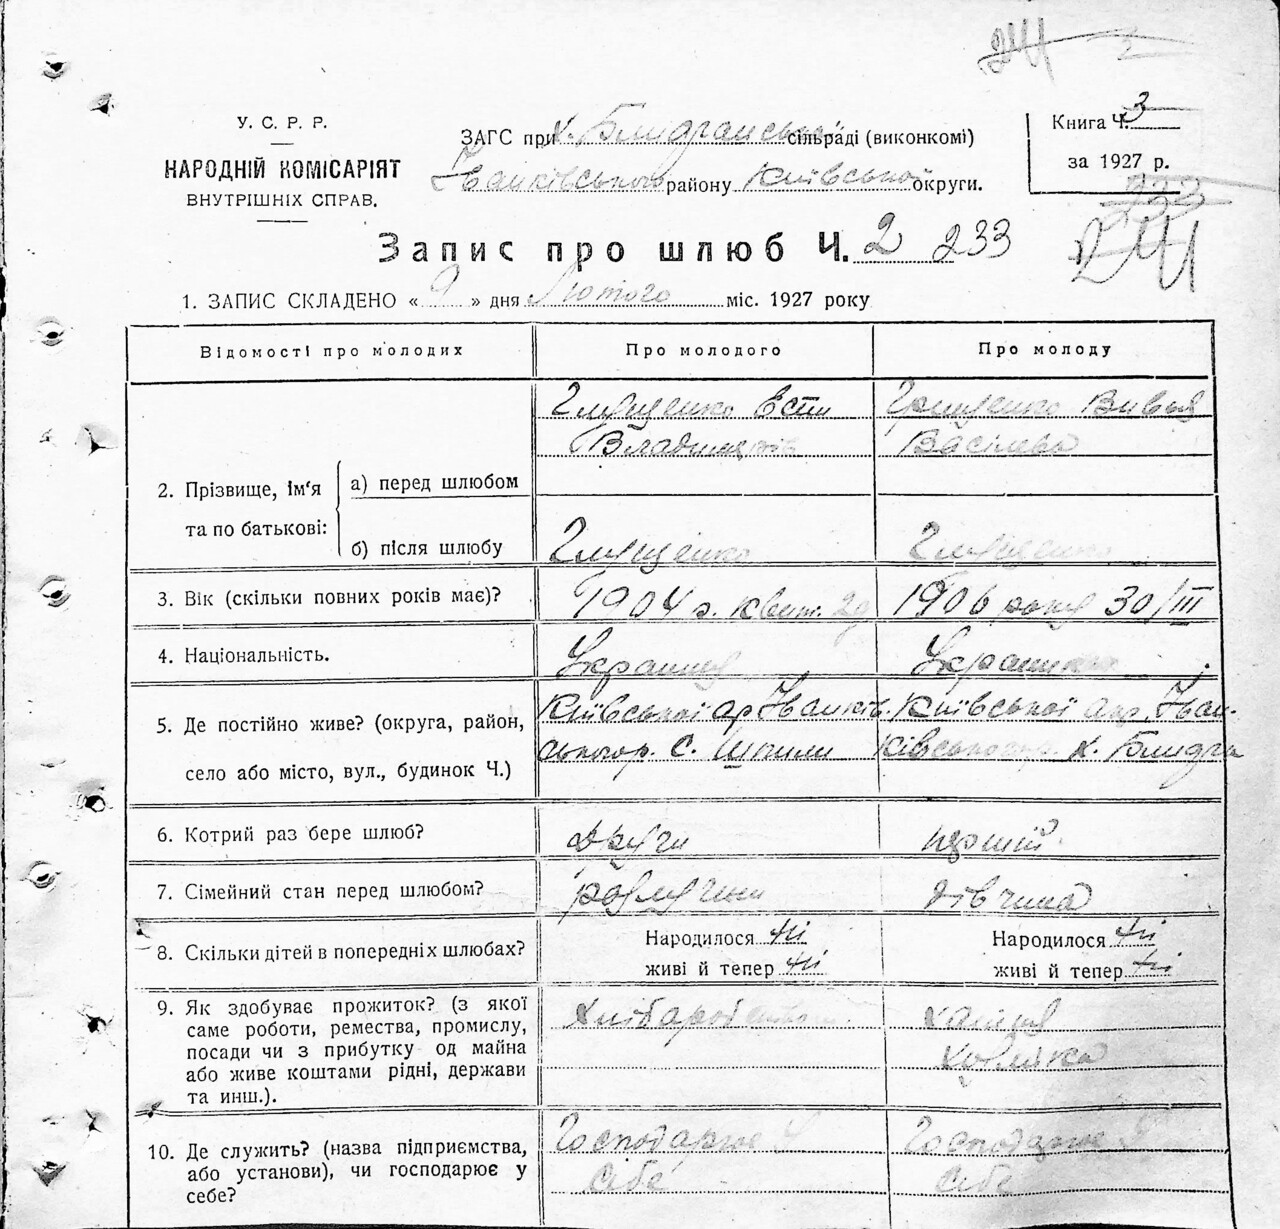 241 2
У. С. Р. Р.
НАРОДНІЙ КОМІСАРІЯТ
ВНУТРІШНІХ СПРАВ.
ЗАГС при х. сільраді (виконкомі)
Іванківського району Київської округи.
Книга Ч. 3
за 1927 р.
233
241
Запис про шлюб Ч. 2 233
1. ЗАПИС СКЛАДЕНО « 9 » дня Лютого міс. 1927 року
Відомості про молодих
Про молодого
Про молоду
2. Прізвище, ім'я та по батькові:
а) перед шлюбом
Глущенко
Грищенко
б) після шлюбу
Глущенко
Глущенко
3. Вік (скільки повних років має)?
1904 р. квіт. 29
1906 року 30/III
4. Національність.
5. Де постійно живе? (округа, район,
село або місто, вул., будинок Ч.)
Київської Іванків
ського р. с. Шпили
Київської окр. Іван-
ківського р. х.
6. Котрий раз бере шлюб?
други
перший
7. Сімейний стан перед шлюбом?
розлучени
дівчина
8. Скільки дітей в попередніх шлюбах?
Народилося ні
живі й тепер ні
Народилося ні
живі й тепер ні
9. Як здобуває прожиток? (з якої
саме роботи, ремества, промислу,
посади чи з прибутку од майна
або живе коштами рідні, держави
та инш.).
10. Де служить? (назва підприємства,
або установи), чи господарює у
себе?
Господарює у
себе
Господарює у
себе